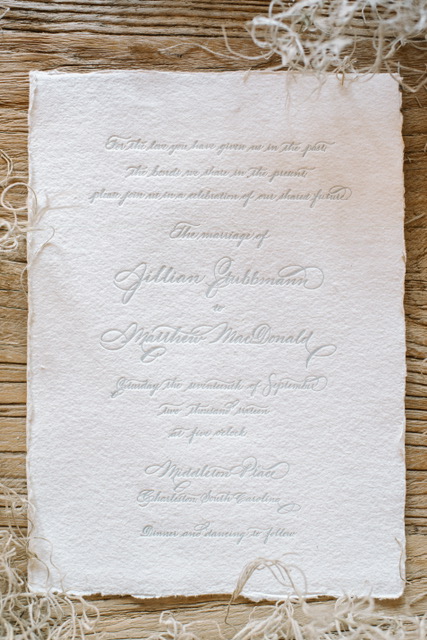 For the love you have given us in the past
the bonds we share in the present
please join us in a celebration of our shared future
The marriage of
Jillian
to
Matthew MacDonald
Saturday the seventeenth of September
two thousand sixteen
at five o'clock
Middleton Place
Charleston South Carolina
Dinner and dancing to follow